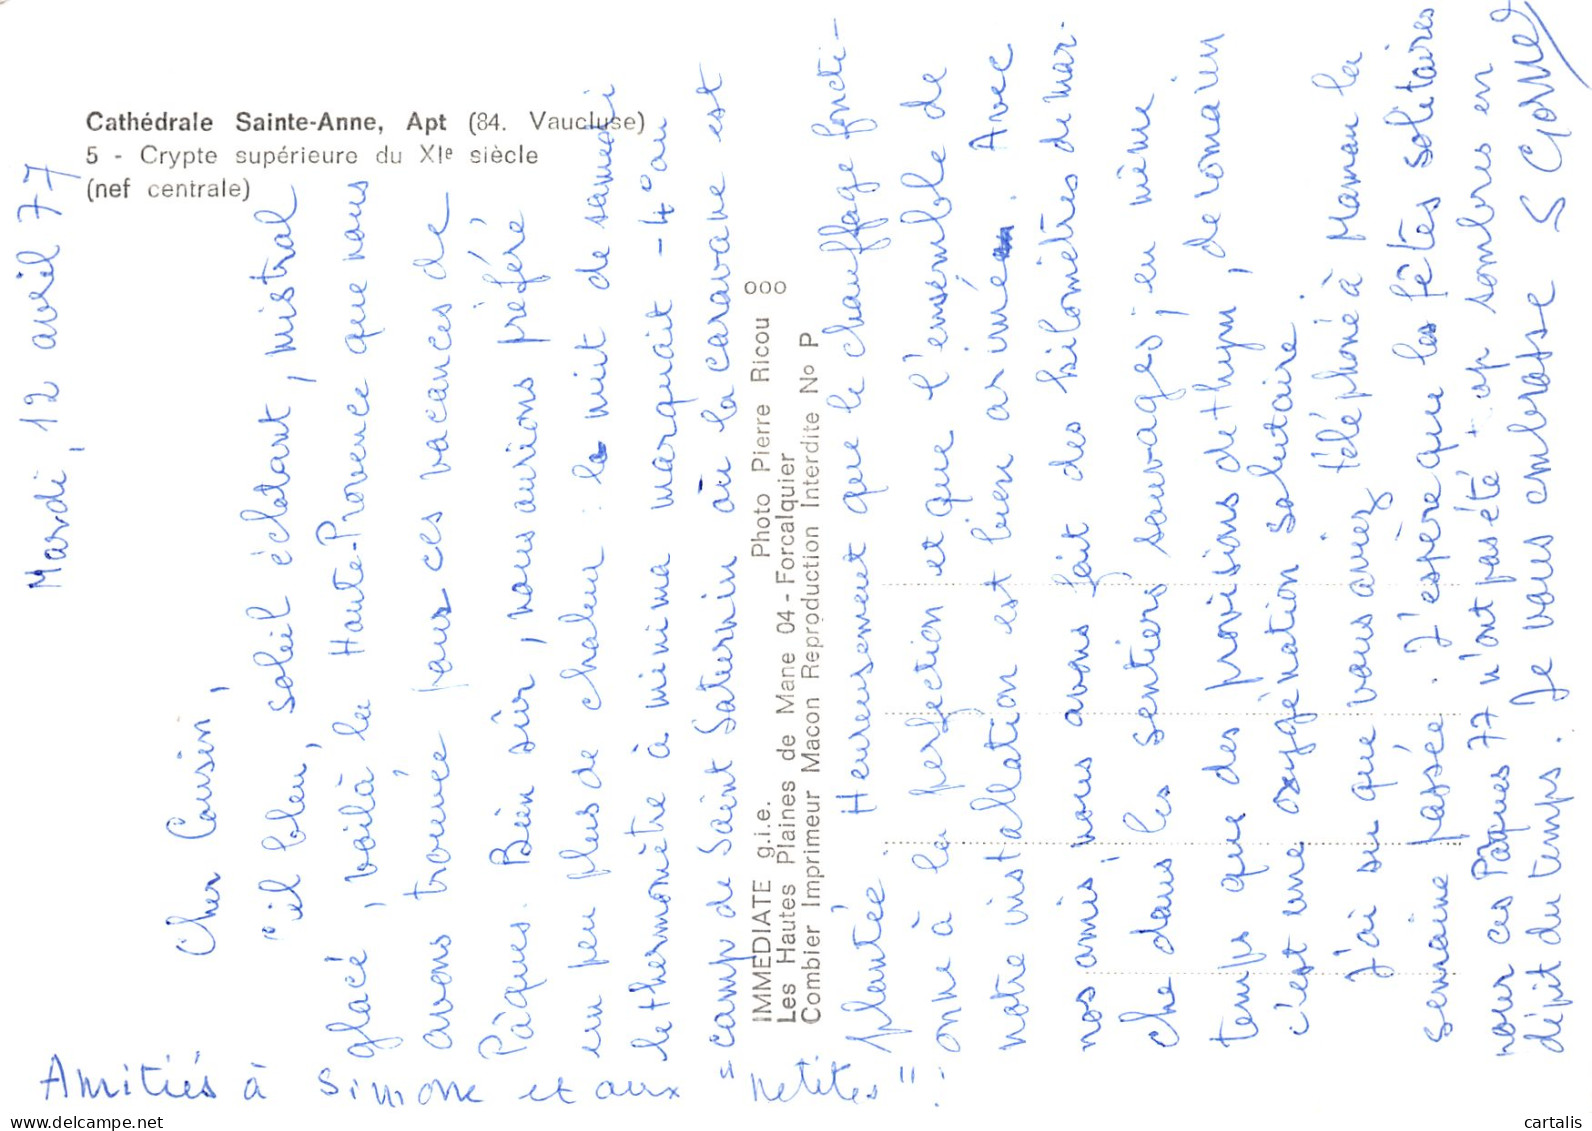 Cathédrale Sainte-Anne, Apt (84. Vaucluse)
5 - Crypte supérieure du XIe siècle
(nef centrale)
Mardi, 12 avril 77
Cher Cousin,
"il bleu, soleil éclatant, mistral
glacé, voilà la Haute-Provence que nous
avons trouvée pour ces vacances de
Pâques. Bien sûr, nous aurions préféré
un peu plus de chaleur : la nuit de samedi
le thermomètre à minima marquait -4° au
"camp de Saint Saturnin où la caravane est
plantée Heureusement que le chauffage foncti-
onne à la perfection et que l'ensemble de
notre installation est bien arrimé. Avec
nos amis, nous avons fait des kilomètres de mar-
che dans les sentiers sauvages ; en même
temps que des provisions de thym, de romarin
c'est une oxygénation salutaire.
J'ai su que vous aviez téléphoné à Maman la
semaine passée. J'espère que les fêtes solitaires
pour ces Pâques 77 n'ont pas été trop sombres en
dépit du temps. Je vous embrasse
Amitiés à Simone et aux "petites" !
IMMEDIATE g.i.e. Photo Pierre Ricou
Les Hautes Plaines de Mane 04 - Forcalquier
Combier Imprimeur Macon Reproduction Interdite No P
www.delcampe.net
cartalis